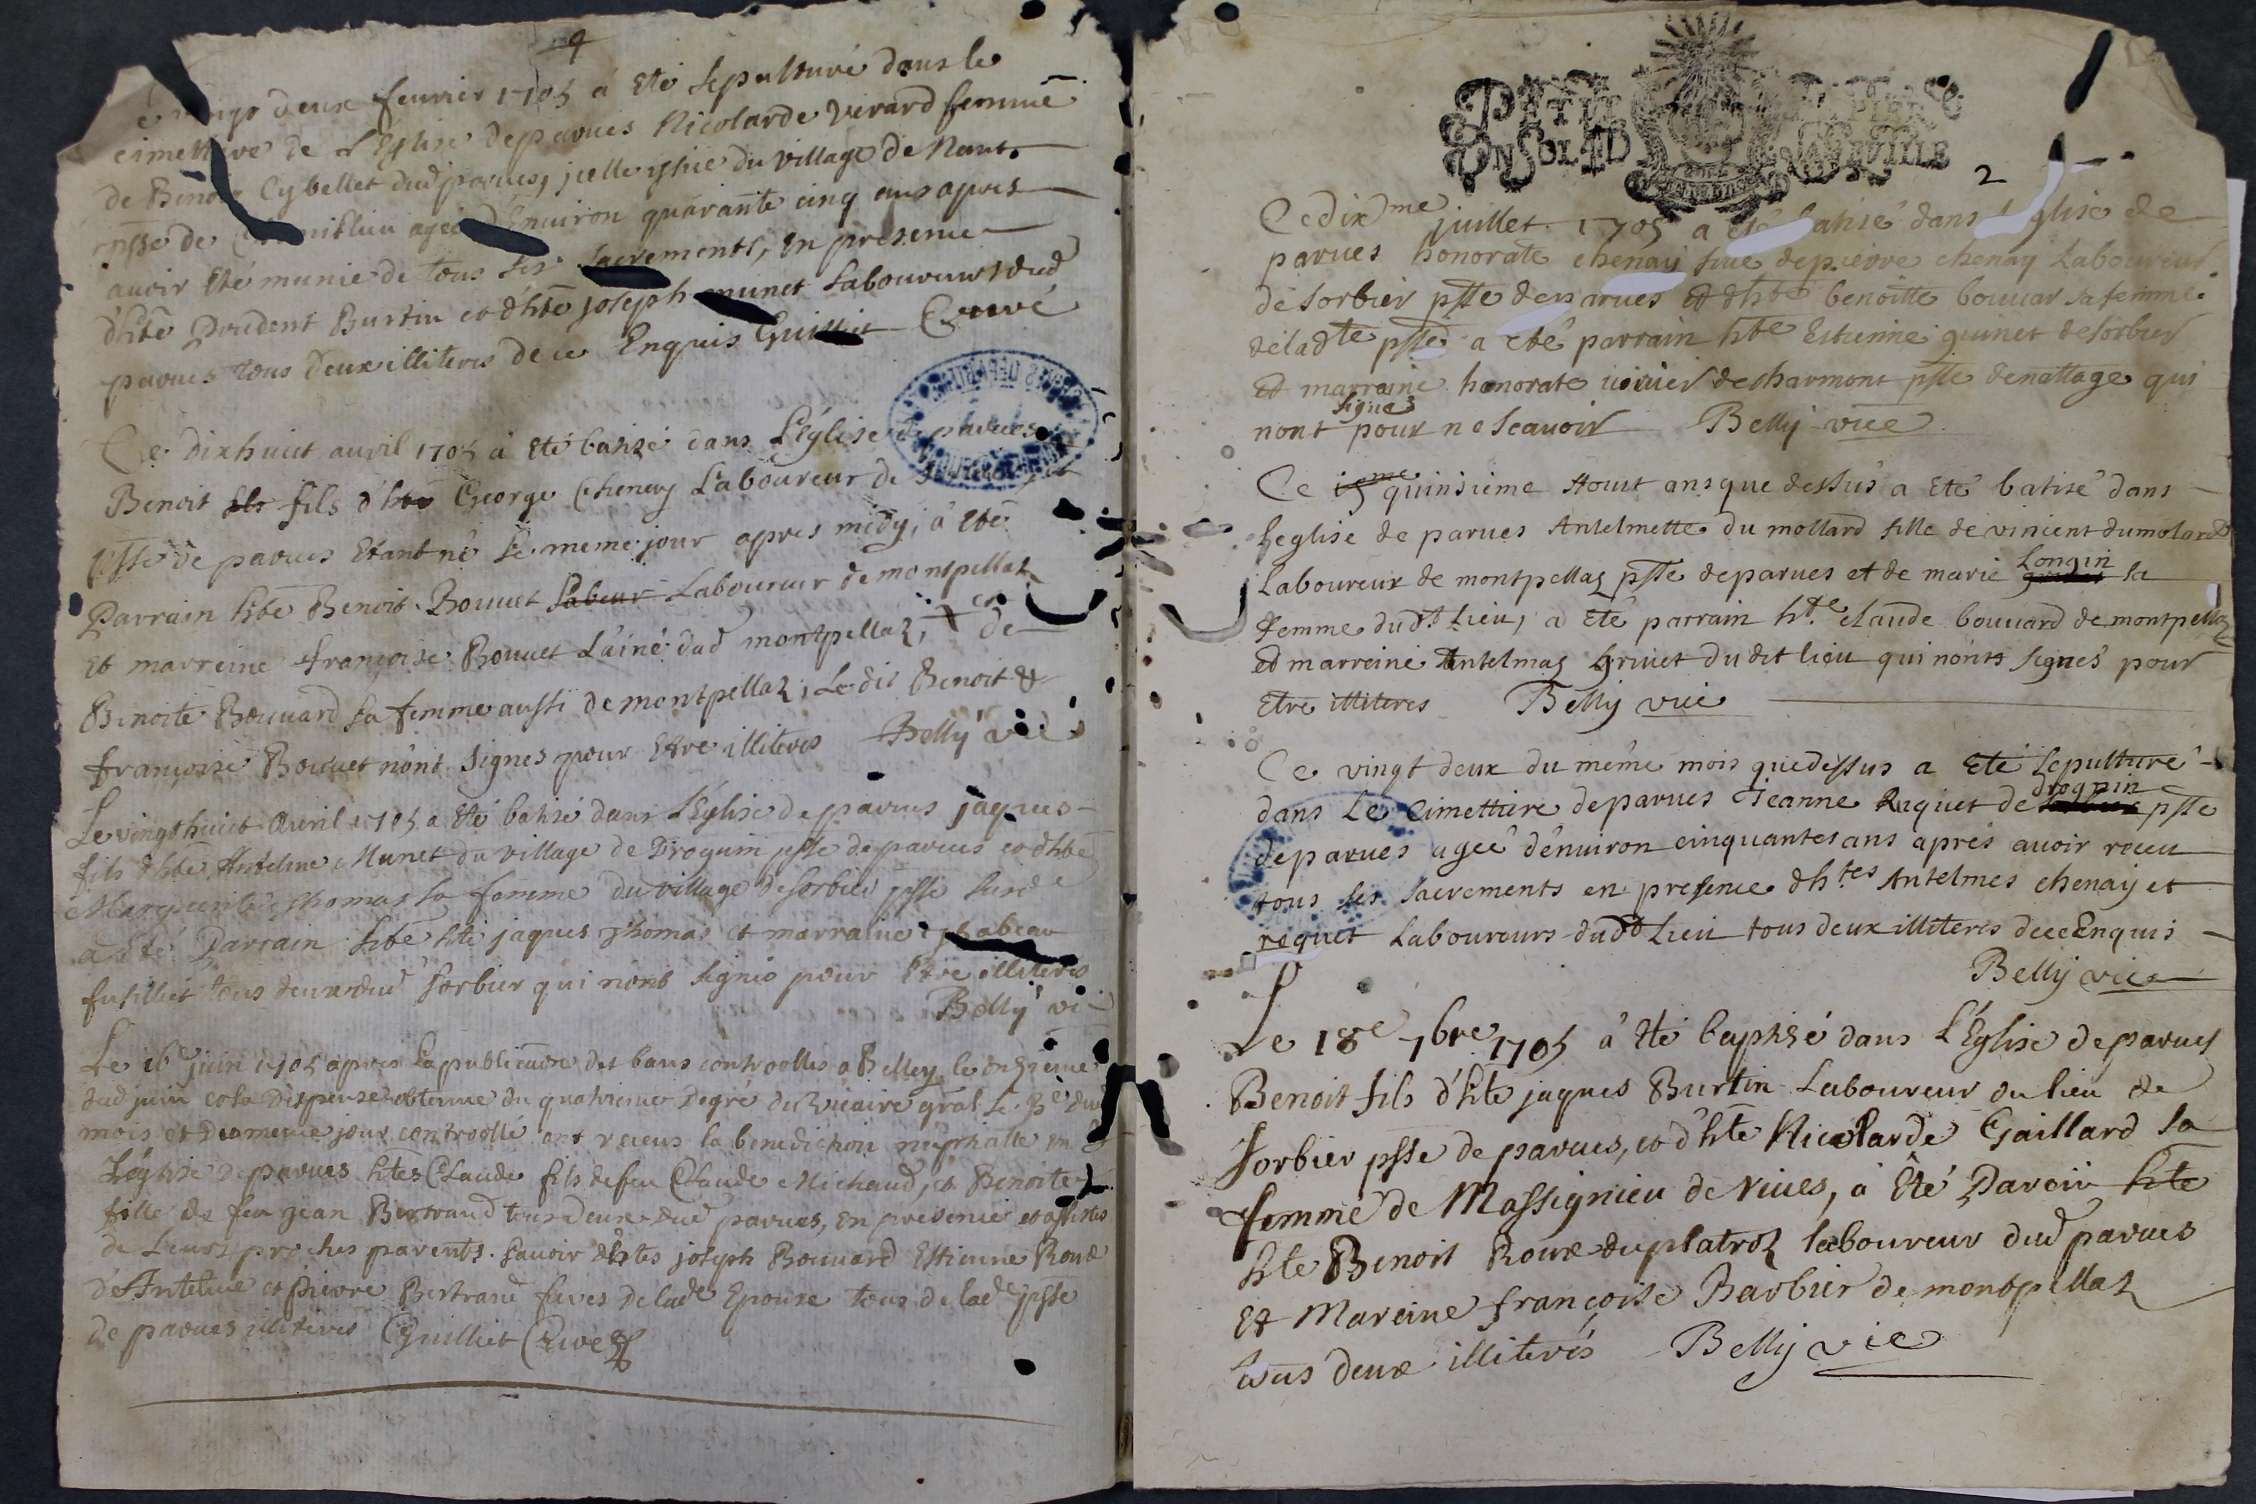 4
Ce vingt deux feuvrier 1705 à Eté Sepulturé dans le
cimettiere de L'Eglise de parues Nicolarde Verard femme
de Benoi Cybellet dud parues, jcelle yssüe du village de Nant
psse de agée d'Enuiron quarante cinq ans apres
auoir Eté munie de tous les sacrements, En presence
d'hte Prudent Burtin et d'hte joseph munet Laboureurs dud
parues tous deux illiteres de ce Enquis Guilliet Curé
Ce dixhuict auvril 1705 à Eté batisé dans L'Eglise de parues
Benoit fils d'hte George Chenay Laboureur de
psse de parues Etant né le meme jour apres midy, à Eté
Parrain hte Benoit Bouuet Labour Laboureur de montpellaz
et marreine françoise Bouuet L'ainé dud montpellaz, et de
Benoite Bouuard sa femme aussi de montpellaz, Le dit Benoit &
françoise Bouuet n'ont Signes pour Etre illiteres Belly vic
Le vingt huict Auril 1705 a Eté batisé dans L'Eglise de parues jaques
fils d'hte Antelme Munet du village de Droguin psse de parues et d'hte
Marguerite Thomas sa femme du village de Sorbier psse susde
a Eté Parrain hte hte jaques Thomas et marraine ysabeau
fusilliet tous deux dud Sorbier qui n'ont Signés pour Etre illiteres
Belly vi
Le 16e juin 1705 apres la publication des bans controolles a Belley le onzieme
dud juin et la Dispense obtenue du quatrieme Degré du Vicaire gral le 8e dud
mois et du meme jour controollé ont receus la benediction nuptialle en
L'Eglise de parues htes Claude fils de feu Claude Michaud, et Benoite
fille de feu jean Bertrand tous deux dud parues, En presence et assistés
de Leurs proches parents. Sauoir d'htes joseph Bouuard Estienne Roux
d'Antelme et pierre Bertrand freres de lade Epouse tous de lade psse
de parues illiteres Guilliet Curé
PETIT PAPIER
UN SOL LA FEUILLE
2
Ce dixme juillet 1705 a Eté batisé dans l'Eglise de
parues honorate chenay fille de pierre chenay Laboureur
de Sorbier psse de parues et d'hte benoitte bouuar sa femme
de ladte psse a eté parrain hte Estienne guinet de Sorbier
et marraine honorate de charmont psse de nattage qui
n'ont signes pour ne Scauoir Belly vice
Ce 15eme quinsieme Aoust ans que dessus a Eté batisé dans
L'eglise de parues Antelmette du mollard fille de vincent dumolard
Laboureux de montpellaz psse de parues et de marie Longin sa
femme dudt Lieu, a Eté parrain hte claude bouuard de montpellaz
et marreine Antelmaz griuet du dit lieu qui n'onts signés pour
Etre illiteres Belly vic
Ce vingt deux du même mois que dessus a Eté Sepulturé
dans Le Cimettiere de parues Jeanne Requet de droguin psse
de parues agée d'enuiron cinquantes ans aprés auoir receu
tous les sacrements en presence d'htes Antelmes chenay et
requet Laboureurs dudt Lieu tous deux illiteres de ce Enquis
Belly vic
Le 18e 7bre 1705 à Eté baptisé dans L'Eglise de parues
Benoit fils d'hte jaques Burtin Laboureur du lieu de
Sorbier psse de parues, et d'hte Nicolarde Gaillard sa
femme de Massignieu de Riues, à Eté Parein hte
hte Benoit Roux du platroz laboureur dud parues
Et Mareine françoise Barbier de montpellaz
tous deux illiterés Belly vic